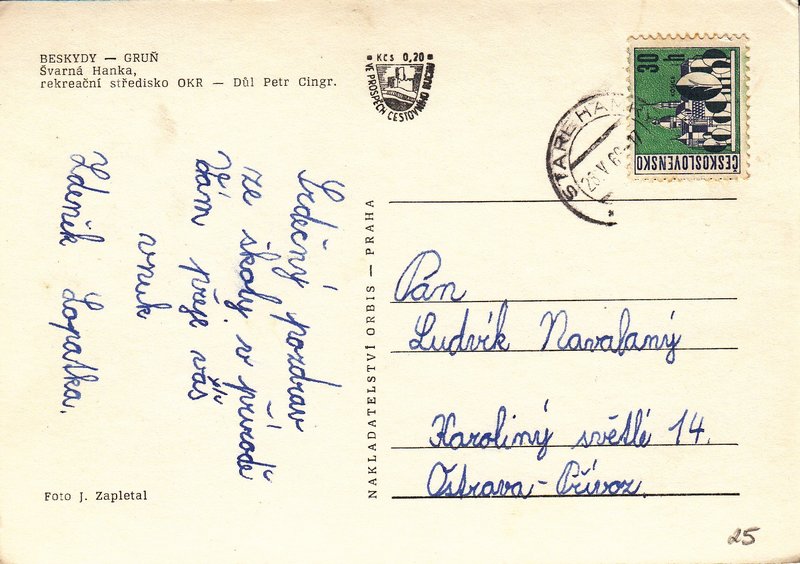 BESKYDY — GRUŇ
Švarná Hanka,
rekreační středisko OKR — Důl Petr Cingr.
Kčs 0,20
VE PROSPĚCH CESTOVNÍHO RUCHU
STARÉ HAM
25 V 6
30 h
ČESKOSLOVENSKO
Srdečný pozdrav
ze školy v přírodě
Vám přeje váš
vnuk
Zdeněk Lopatka.
NAKLADATELSTVÍ ORBIS — PRAHA
Pán
Ludvík Navalaný
Karoliný světlé 14.
Ostrava-Přívoz.
Foto J. Zapletal
25